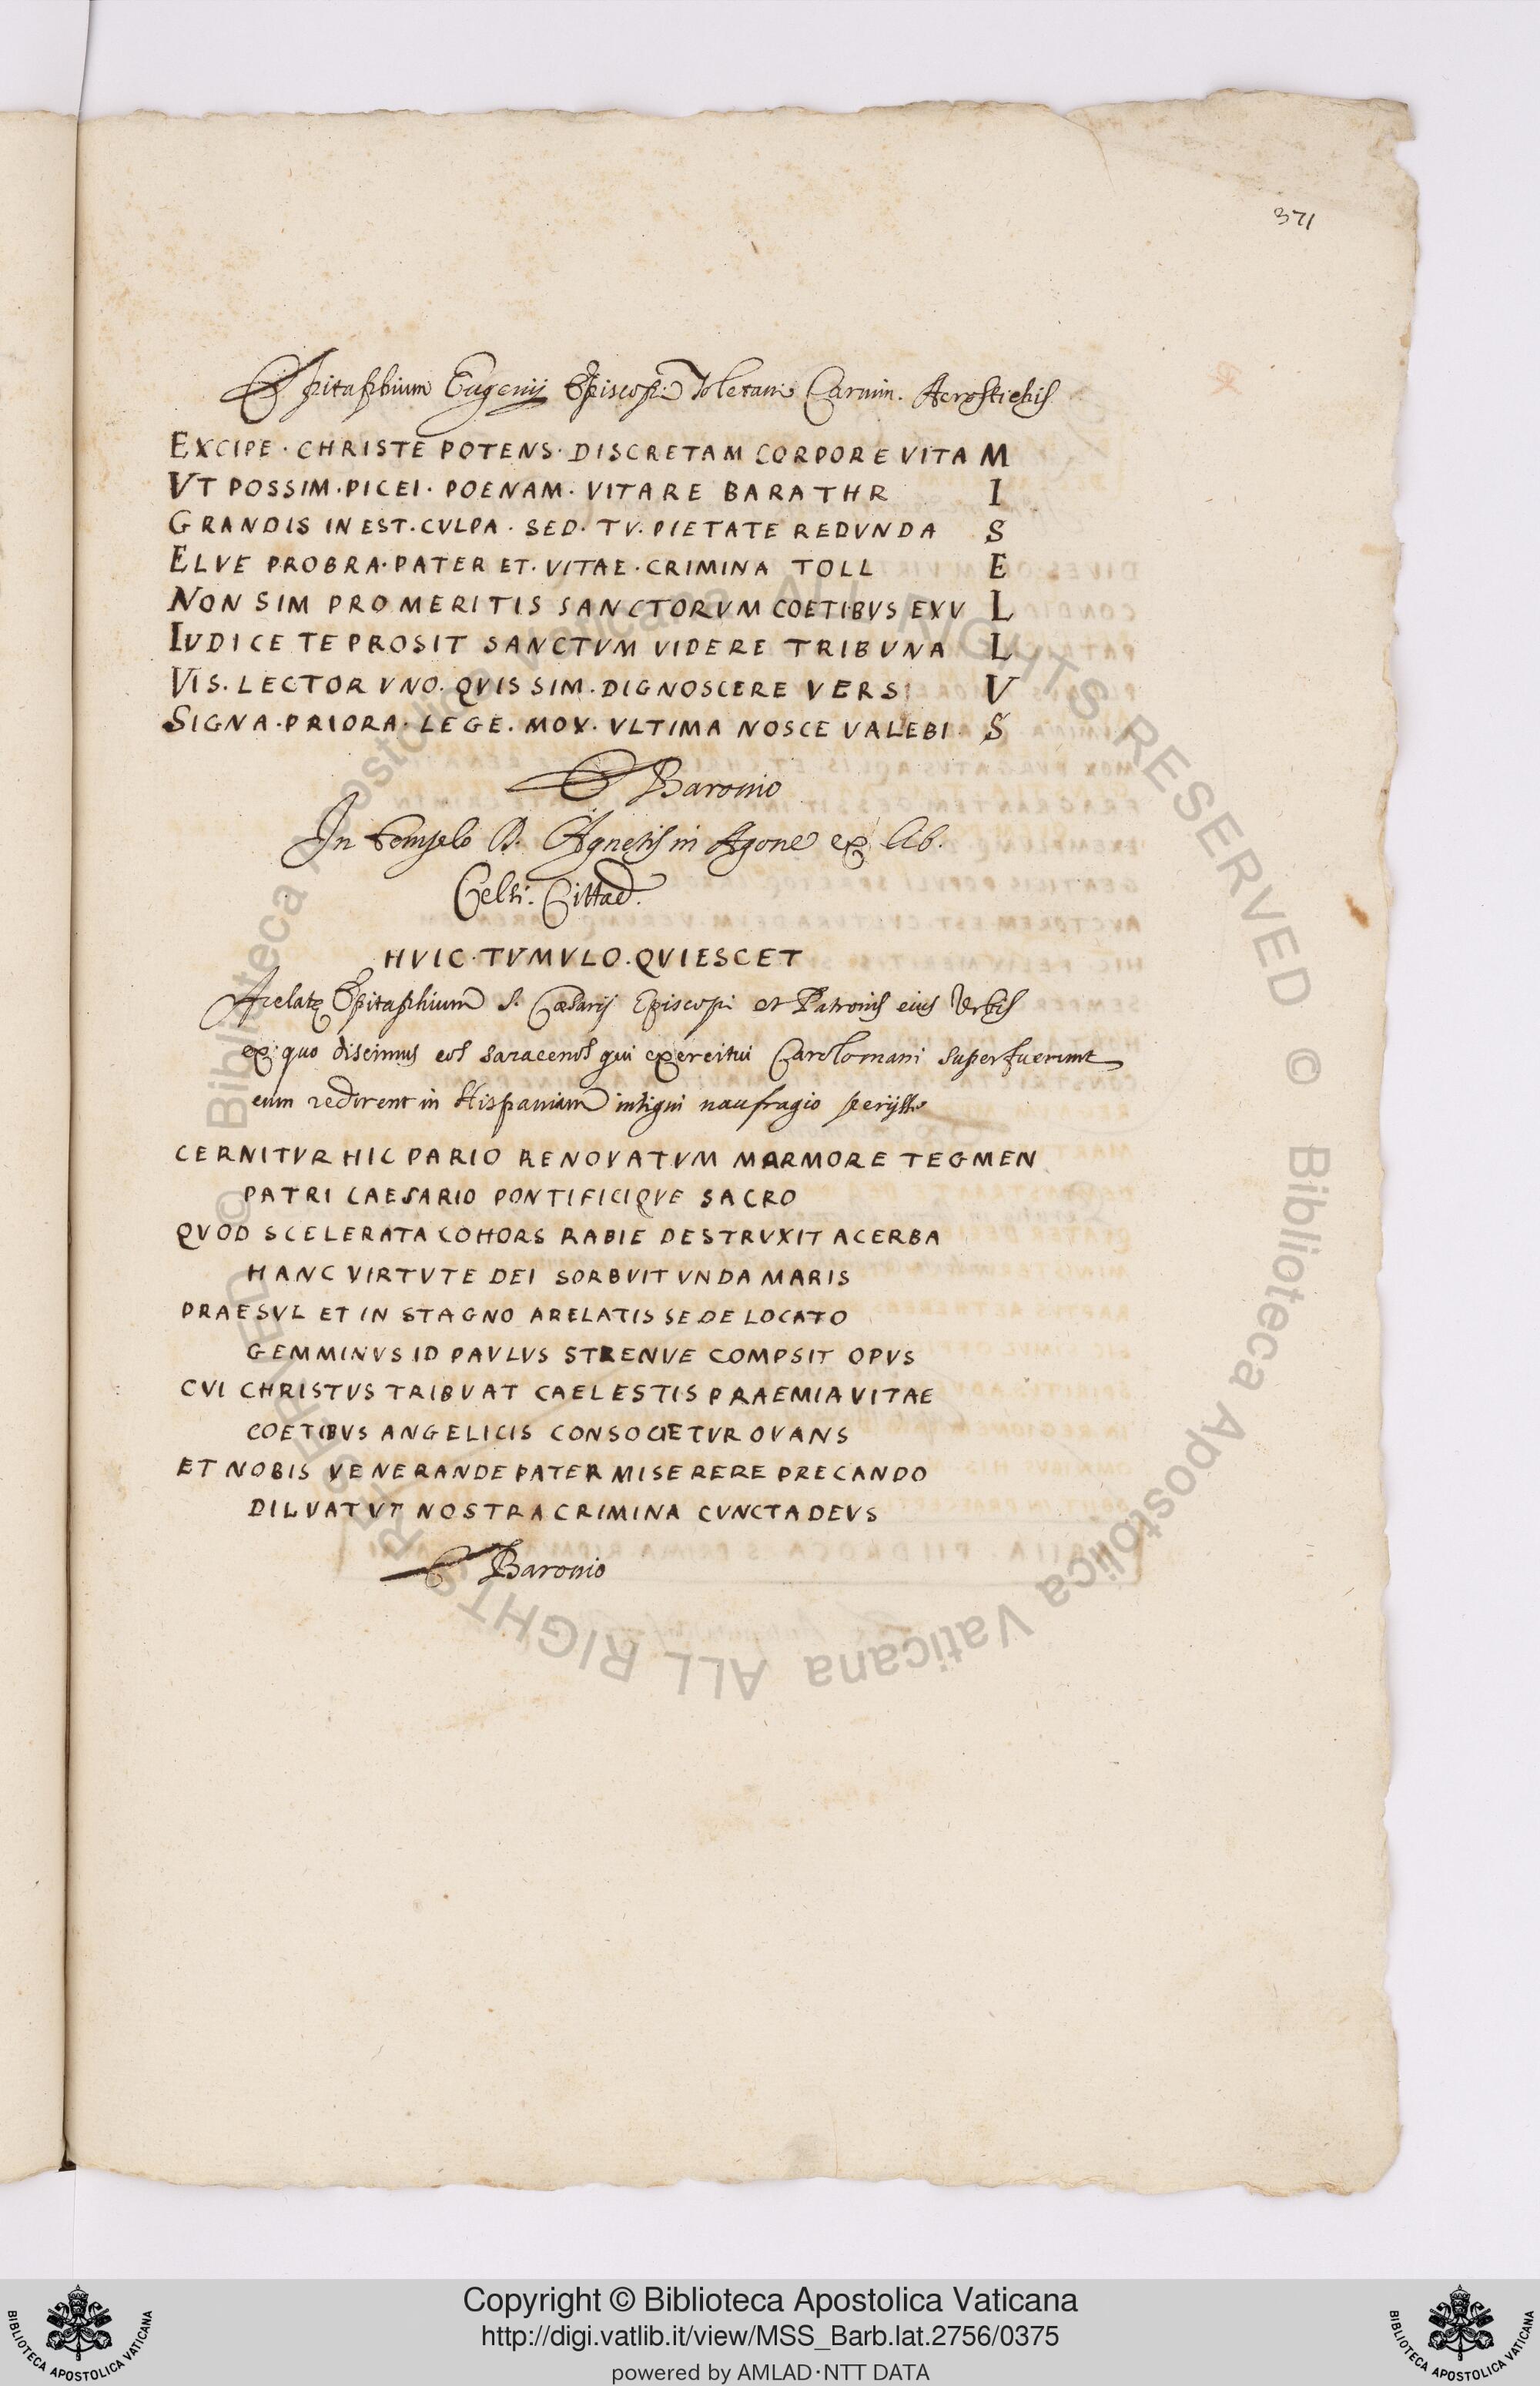 371
Epitaphium Eugenij Episcopi Toletani Carmin. Acrostichis
EXCIPE · CHRISTE POTENS · DISCRETAM CORPORE VITA M
VT POSSIM · PICEI · POENAM · VITARE BARATHR I
GRANDIS IN EST · CVLPA · SED · TV · PIETATE REDVNDA S
ELVE PROBRA · PATER ET · VITAE · CRIMINA TOLL E
NON SIM PRO MERITIS SANCTORVM COETIBVS EXV L
IVDICE TE PROSIT SANCTVM VIDERE TRIBVNA L
VIS · LECTOR VNO · QVIS SIM · DIGNOSCERE VERS V
SIGNA · PRIORA · LEGE · MOX · VLTIMA NOSCE VALEBI S
E Baronio
In templo D. Agnetis in Agone ex lib.
Celsi. Cittad.
HVIC · TVMVLO · QVIESCET
Arelatę Epitaphium S. Cæsarij Episcopi et Patronis eius Urbis
ex quo discimus eos saracenos qui exercitui Carolomani superfuerunt
cum redirent in Hispaniam insigni naufragio perijsse
CERNITVR HIC PARIO RENOVATVM MARMORE TEGMEN
PATRI CAESARIO PONTIFICIQVE SACRO
QVOD SCELERATA COHORS RABIE DESTRVXIT ACERBA
HANC VIRTVTE DEI SORBVIT VNDA MARIS
PRAESVL ET IN STAGNO ARELATIS SEDE LOCATO
GEMMINVS ID PAVLVS STRENVE COMPSIT OPVS
CVI CHRISTVS TRIBVAT CAELESTIS PRAEMIA VITAE
COETIBVS ANGELICIS CONSOCIETVR OVANS
ET NOBIS VENERANDE PATER MISERERE PRECANDO
DILVAT VT NOSTRA CRIMINA CVNCTA DEVS
E Baronio
© Biblioteca Apostolica Vaticana ALL RIGHTS RESERVED © Biblioteca Apostolica Vaticana ALL RIGHTS RESERVED
BIBLIOTECA APOSTOLICA VATICANA
Copyright © Biblioteca Apostolica Vaticana
http://digi.vatlib.it/view/MSS_Barb.lat.2756/0375
powered by AMLAD·NTT DATA
BIBLIOTECA APOSTOLICA VATICANA